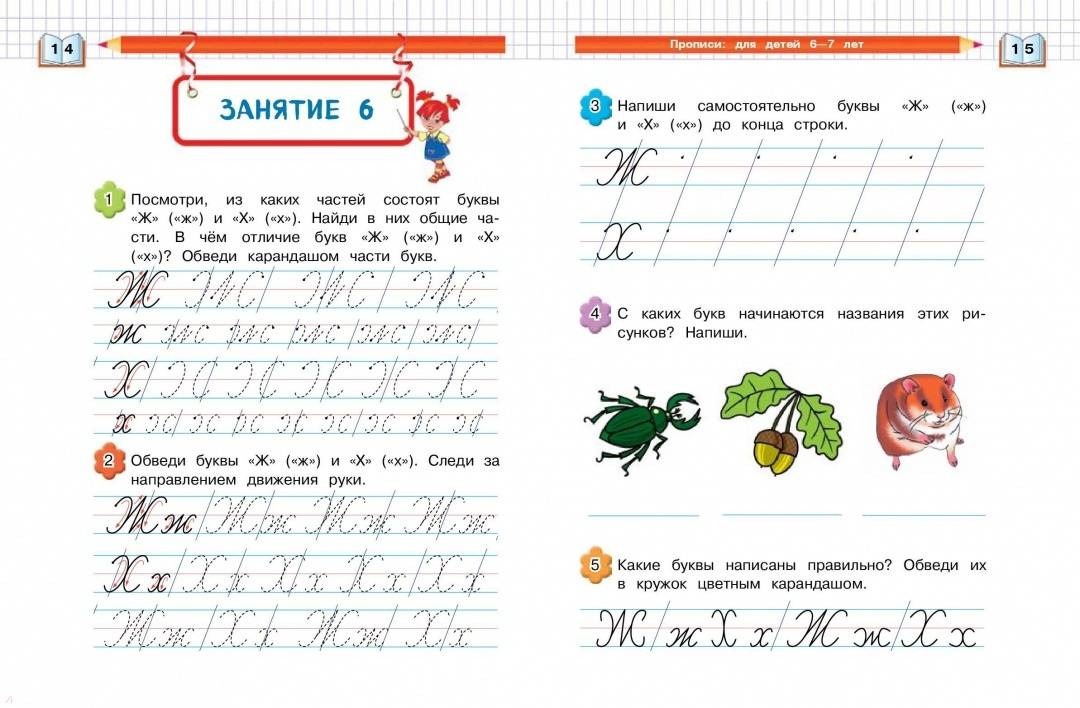 14
ЗАНЯТИЕ 6
1 Посмотри, из каких частей состоят буквы
«Ж» («ж») и «Х» («х»). Найди в них общие ча-
сти. В чём отличие букв «Ж» («ж») и «Х»
(«х»)? Обведи карандашом части букв.
Ж
ж
Х
х
2 Обведи буквы «Ж» («ж») и «Х» («х»). Следи за
направлением движения руки.
Жж Жж Жж Жж
Хх Хх Хх Хх Хх
Жж Хх Жж Хх
Прописи: для детей 6—7 лет
15
3 Напиши самостоятельно буквы «Ж» («ж»)
и «Х» («х») до конца строки.
Ж
Х
4 С каких букв начинаются названия этих ри-
сунков? Напиши.
5 Какие буквы написаны правильно? Обведи их
в кружок цветным карандашом.
Ж ж Х х Ж ж Х х